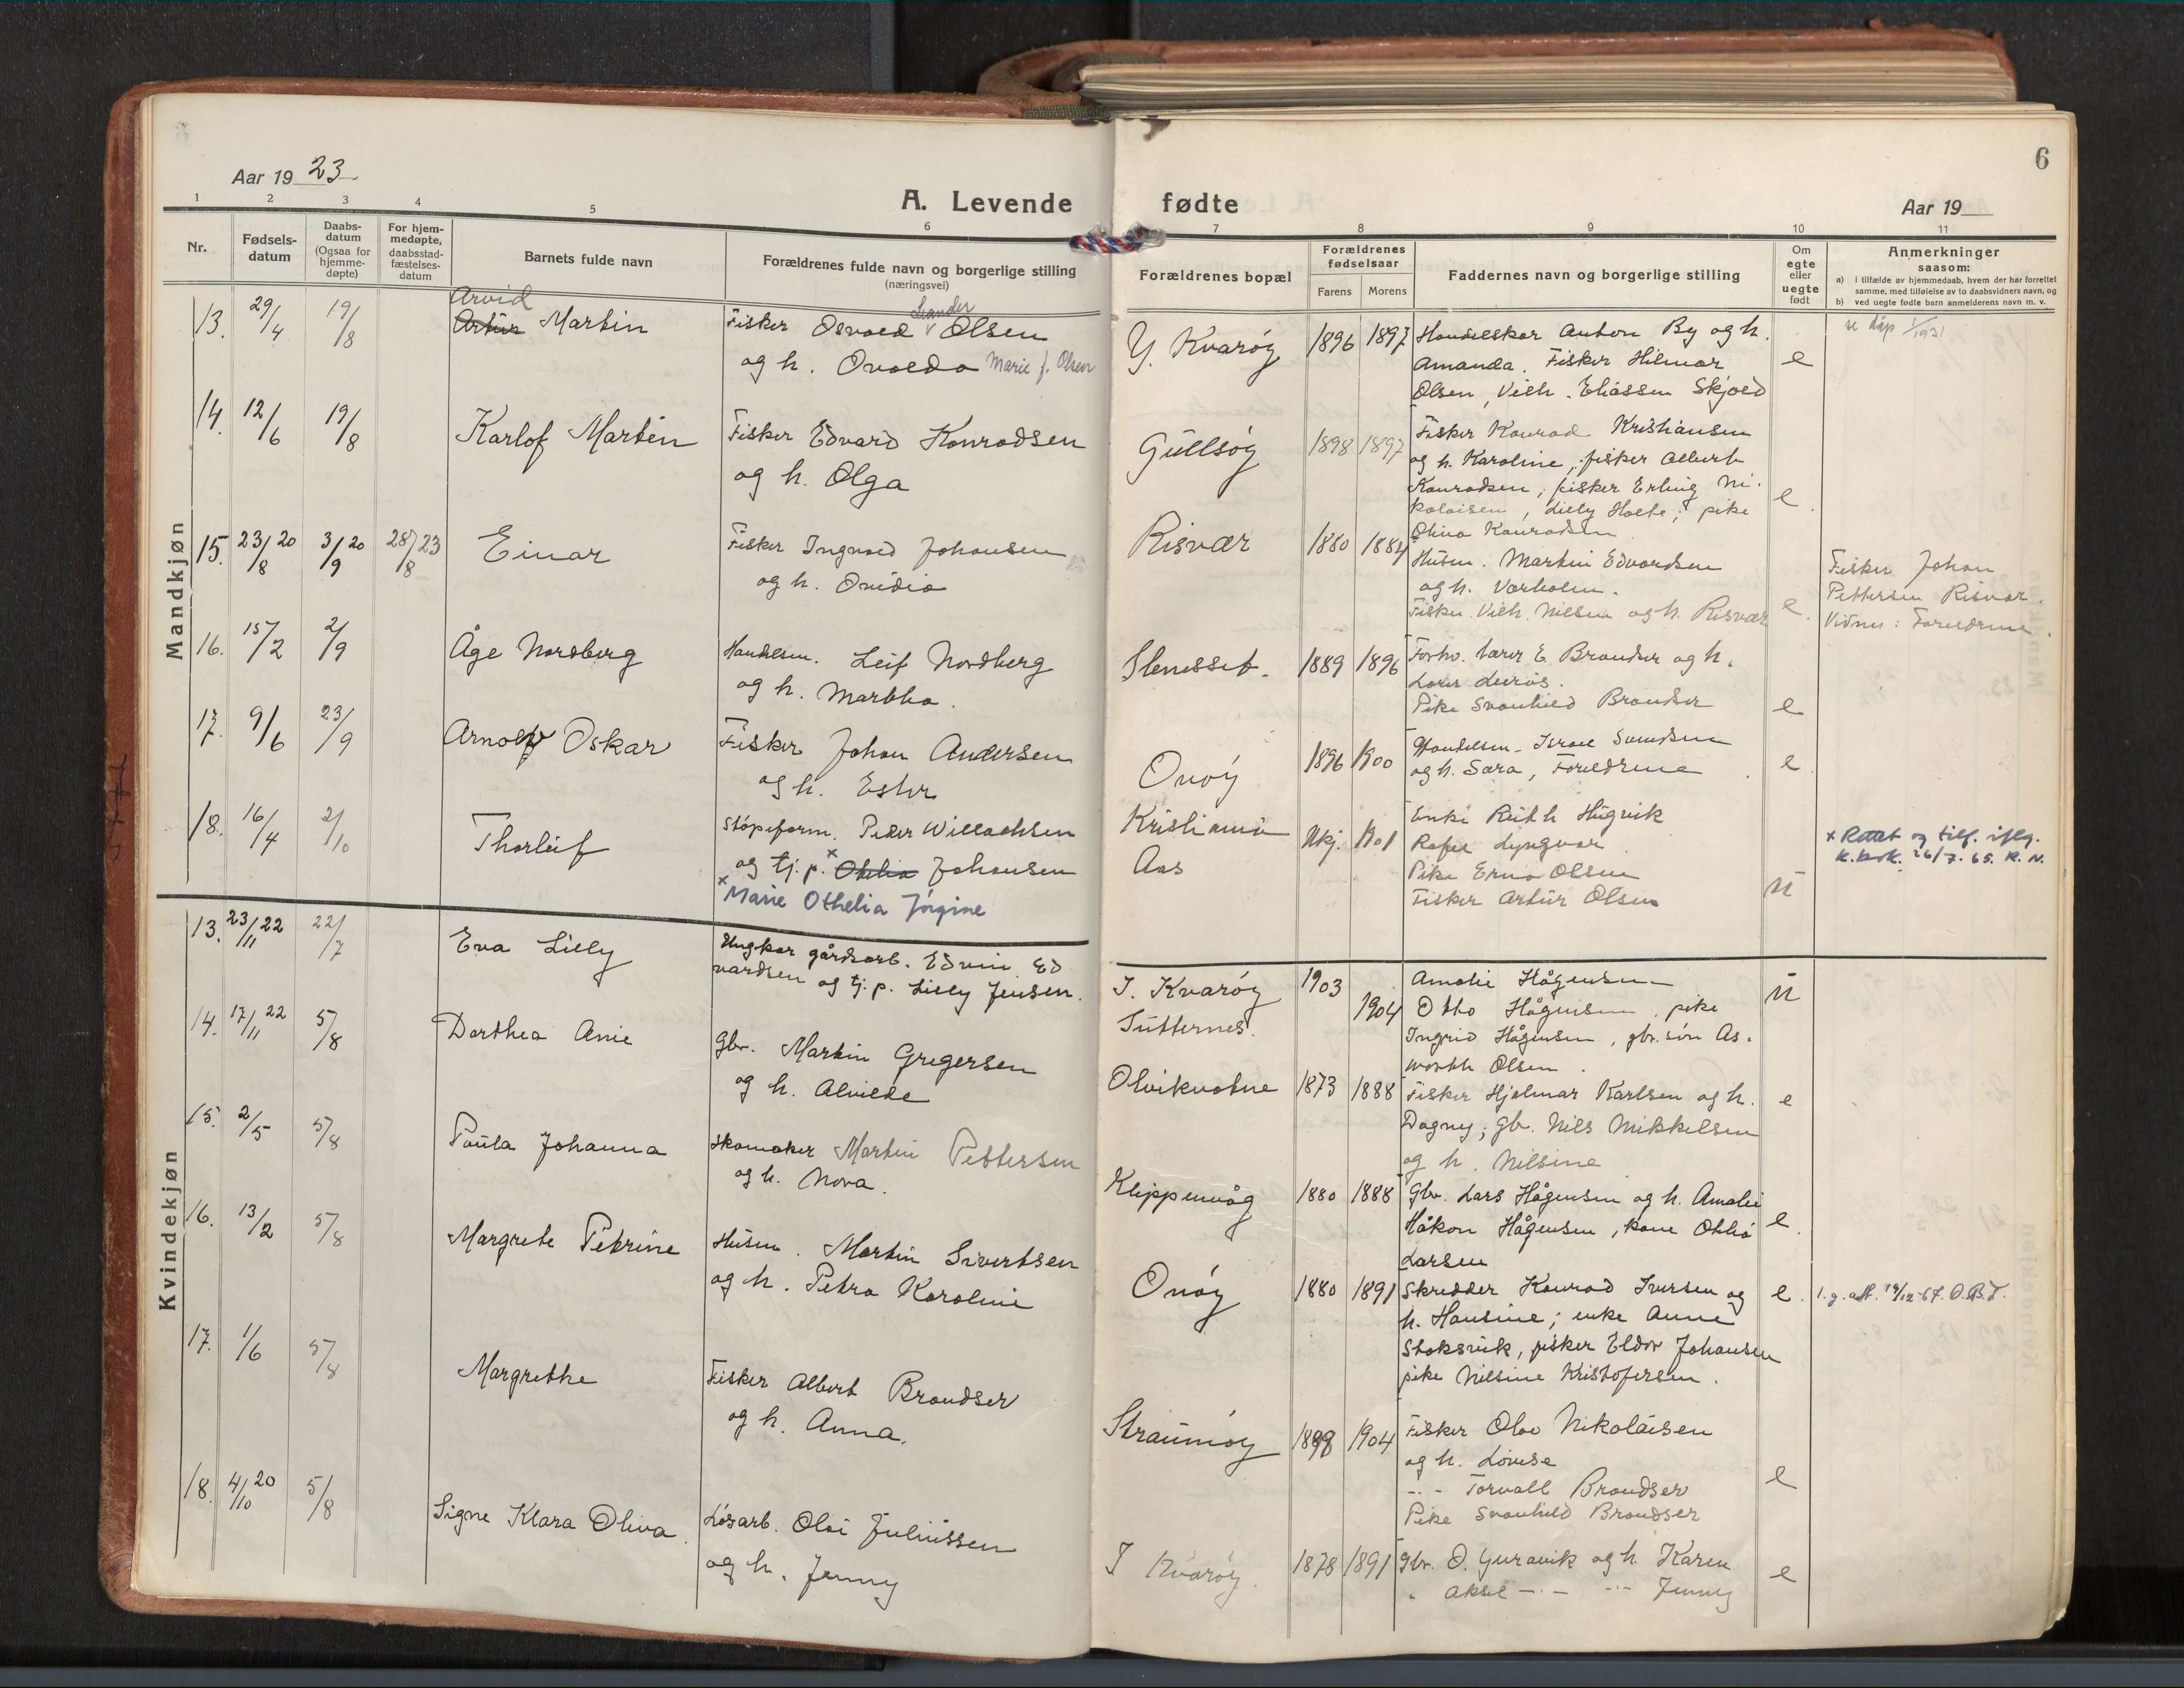 6
Aar 19 23
A. Levende fødte
Aar 19
1 2 3 4 5 6 7 8 9 10 11
Nr.
Fødsels-
datum
Daabs-
datum
(Ogsaa for
hjemme-
døpte)
For hjem-
medøpte,
daabsstad-
fæstelses-
datum
Barnets fulde navn
Forældrenes fulde navn og borgerlige stilling
(næringsvei)
Forældrenes bopæl
Forældrenes
fødselsaar
Farens Morens
Faddernes navn og borgerlige stilling
Om
egte
eller
uegte
født
Anmerkninger
saasom:
a) i tilfælde av hjemmedaab, hvem der har forrettet
samme, med tilføielse av to daabsvidners navn, og
b) ved uegte fødte barn anmelderens navn m. v.
Mandkjøn
13. 29/4 19/8
Arvid
Artur Martin
Leander
Fisker Osvald Olsen
og h. Ovalda Marie f. Olsen
Y. Kvarøy 1896 1897
Handelskar Anton By og h.
Amanda. Fisker Hilmar
Olsen, Vilh. Eliassen Skjold
e
se dåp 1/1931
14. 12/6 19/8
Karlof Martin
Fisker Edvard Konradsen
og h. Olga
Gullsøy 1898 1897
Fisker Konrad Kristiansen
og h. Karoline, fisker Albert
Konradsen, fisker Erling Ni-
kolaisen, Lilly Holte; pike
Olina Konradsen
e
15. 23/8 20 3/9 20 28/8 23
Einar
Fisker Ingvald Johansen
og h. Ovidia
Risvær 1880 1884
Husm. Martin Edvardsen
og h. Varholm.
Fisker Vilh. Nilsen og h. Risvær
e.
Fisker Johan
Pettersen Risvær.
Vidner: Foreldrene.
16. 15/2 2/9
Åge Nordberg
Handelsm. Leif Nordberg
og h. Martha.
Stenesset. 1889 1896
Forhv. lærer E. Brandser og h.
Pike Svanhild Brandser
e
17. 9/6 23/9
Arnolf Oskar
Fisker Johan Andersen
og h. Ester
Onøy 1896 1900
Handelsm. Israel Svendsen
og h. Sara, Foreldrene
e
18. 16/4 2/10
Thorleif
Støpeform. Peder Willochsen
og tj. p. x Othilia Johansen
x Marie Othelia Jørgine
Kristiania
Aas
Ukj. 1901
Enke Ruth Hugvik
Rafel Lyngvær
Pike Erna Olsen
Fisker Artur Olsen
u
x Rettet og tilf. iflg.
k.bok. 26/7. 65. K. N.
Kvindekjøn
13. 23/11 22 22/7
Eva Lilly
Ungkar gårdsarb. Edvin Ed
vardsen og tj. p. Lilly Jensen.
I. Kvarøy 1903
Sutternes. 1904
Amalie Hågensen
Otto Hågensen, pike
Ingrid Hågensen, gbr. søn As-
worth Olsen.
u
14. 17/11 22 5/8
Dorthea Anie
Gbr. Martin Gregersen
og h. Alvilde
Olvikvatne 1873 1888
Fisker Hjalmar Karlsen og h.
Dagny; Gb. Nils Mikkelsen
og h. Nilsine
e
15. 2/5 5/8
Paula Johanna
Skomaker Martin Pettersen
og h. Nora.
Klippenvåg 1880 1888
Gbr. Lars Hågensen og h. Amalie
Håkon Hågensen, kone Othilia
Larsen
e.
16. 13/2 5/8
Margrete Petrine
Husm. Martin Sivertsen
og h. Petra Karoline
Onøy 1880 1891
Skredder Konrad Iversen og
h. Hansine; enke Anne
Stoksvik, fisker Eldor Johansen
pike Nilsine Kristofersen.
e.
1. g. att. 14/12-67. O.B.T.
17. 1/6 5/8
Margrethe
Fisker Albert Brandser
og h. Anna.
Straumøy 1898 1904
Fisker Olav Nikolaisen
og h. Lovise
-"- Torvall Brandser
Pike Svanhild Brandser
e
18. 4/10 20 5/8
Signe Klara Oliva.
Løsarb. Olai Juliussen
og h. Jenny
I Kvarøy. 1878 1891
Gbr. O. Guravik og h. Karen
" Aksel -"- -"- Jenny
e